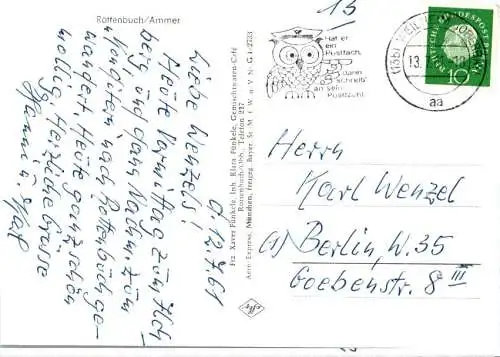 Rottenbuch/Ammer
13
Hat er
ein
Postfach,
dann
schreib'
an sein
Postfach!
13.
aa
DEUTSCHE BUNDESPOST
10
O, 12.7.61
Liebe Wenzels!
Heute Vormittag zum
berg und ganz Nachm. zum
nach Rottenbuch ge-
wandert. Heute ganz schön
wollig. Herzliche Grüsse
Hanni u.
Frz. Xaver Fünkele, Inh. Klara Fünkele, Gemischtwaren-Café
Rottenbuch/Obb., Telefon 237
Aero Express, München, Freigeg. Bayer. St. M. f. W. u. V. Nr. G 4/2733
Herrn
Karl Wenzel
(1) Berlin, W. 35
Goebenstr. 8 III